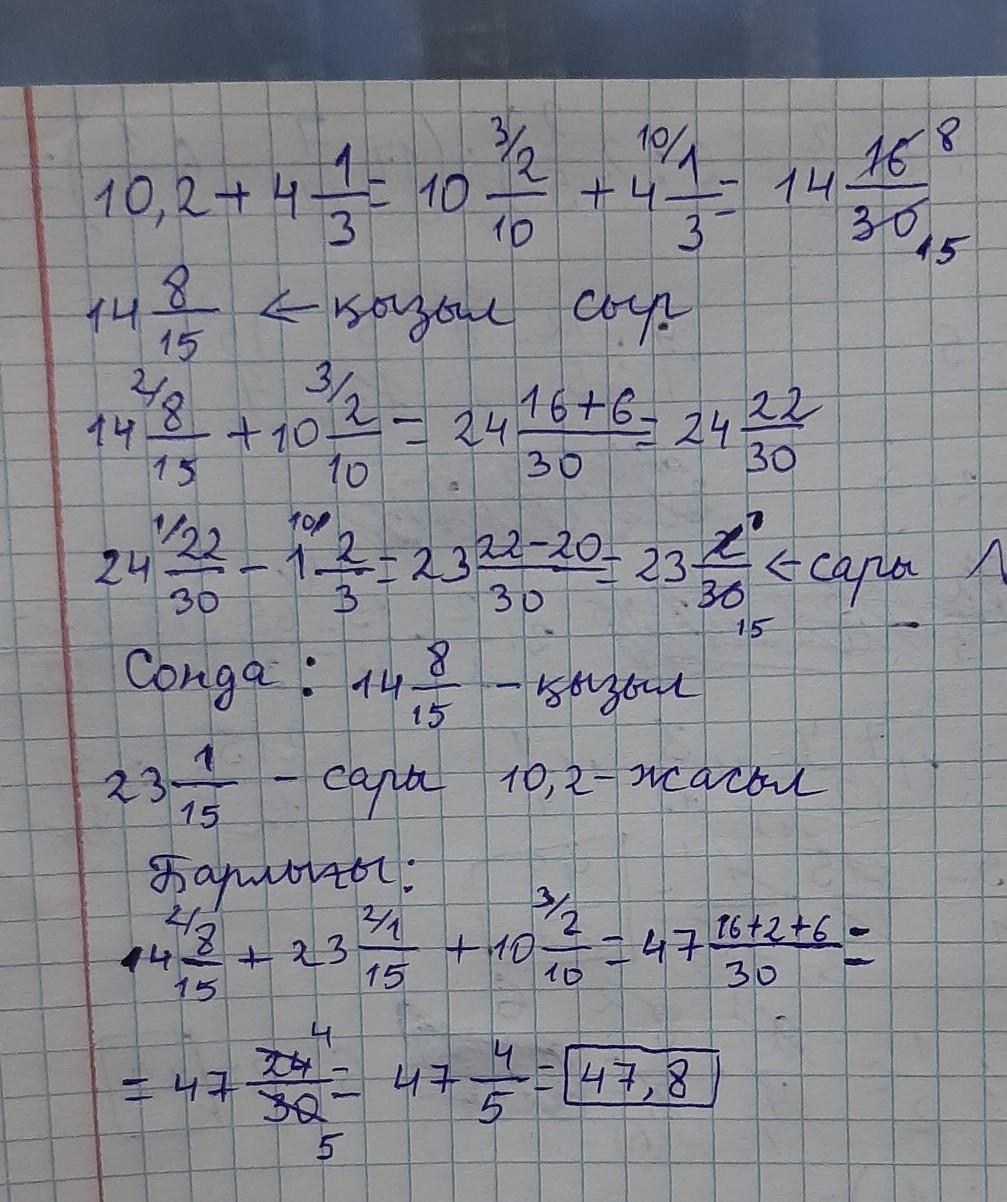 10,2 + 4 1/3 = 10 3/ 2/10 + 4 10/ 1/3 = 14 16/30 8 15
14 8/15 ← қызыл сыр
14 2/ 8/15 + 10 3/ 2/10 = 24 16+6/30 = 24 22/30
24 1/ 22/30 - 1 10/ 2/3 = 23 22-20/30 = 23 2/30 1 15 ← сары
Сонда : 14 8/15 - қызыл
23 1/15 - сары 10,2 - жасыл
Барлығы:
14 2/ 8/15 + 23 2/ 1/15 + 10 3/ 2/10 = 47 16+2+6/30 =
= 47 24/30 4 5 = 47 4/5 = 47,8